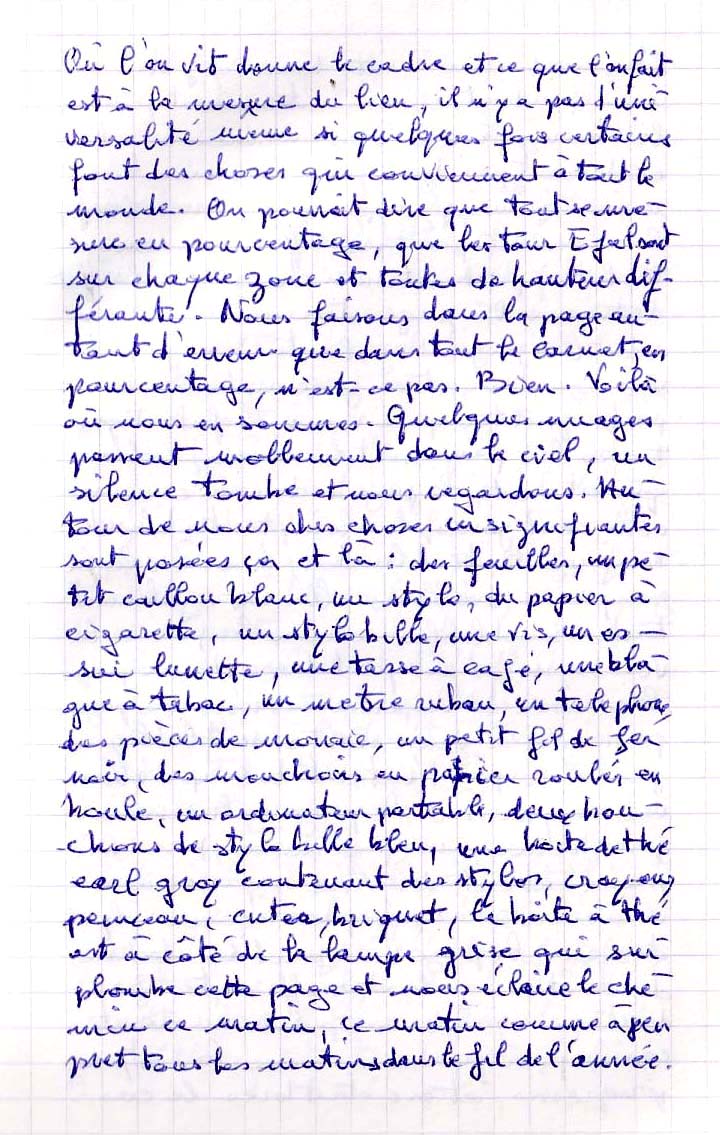 Où l'on vit donne le cadre et ce que l'on fait
est à la mesure du lieu, il n'y a pas d'uni-
versalité même si quelques fois certains
font des choses qui conviennent à tout le
monde. On pourrait dire que tout se me-
sure en pourcentage, que les tour Efel sont
sur chaque zone et toutes de hauteur dif-
férante. Nous faisons dans la page au-
tant d'erreur que dans tout le carnet, en
pourcentage, n'est-ce pas. Bien. Voilà
où nous en sommes. Quelques nuages
passent mollement dans le ciel, un
silence tombe et nous regardons. Au-
tour de nous des choses insignifiantes
sont posées ça et là : des feuilles, un pe-
tit caillou blanc, un stylo, du papier à
cigarette, un stylo bille, une vis, un es-
sui lunette, une tasse à café, une bla-
gue à tabac, un metre ruban, un telephone,
des pièces de monaie, un petit fil de fer
noir, des mouchoirs en papier roulés en
boule, un ordinateur portable, deux bou-
chons de stylo bille bleu, une boite de thé
earl grey contenant des stylos, crayons,
peinceau, cuter, briquet, la boite à thé
est à côté de la lampe grise qui sur-
plombe cette page et nous éclaire le che-
min ce matin, ce matin comme à peu
pret tous les matins dans le fil de l'année.